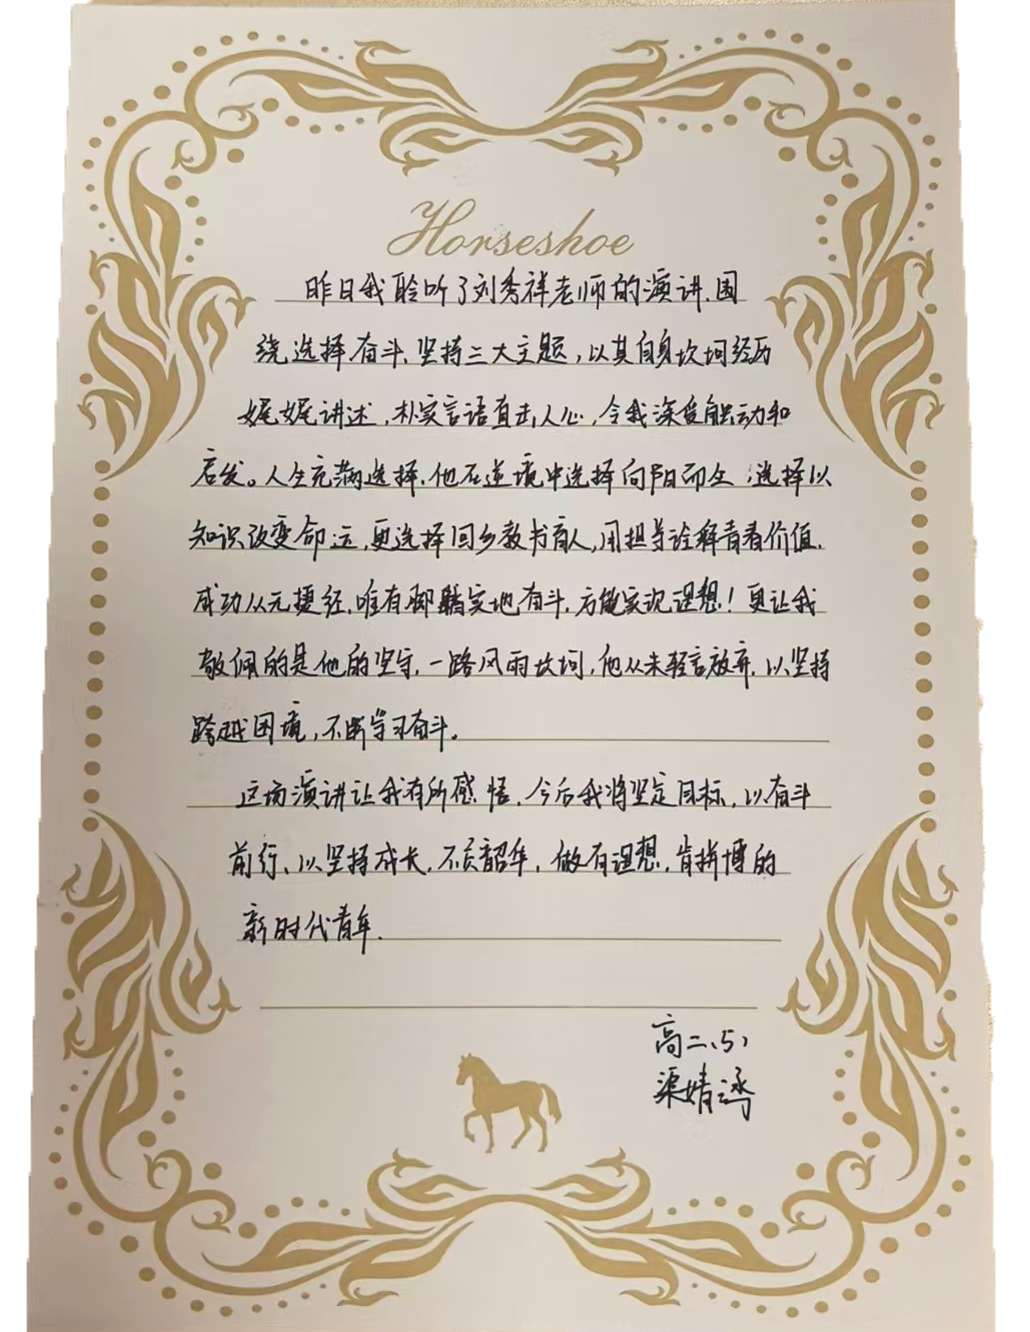 Horseshoe
昨日我聆听了刘秀祥老师的演讲,围
绕选择奋斗,坚持三大主题,以其自身坎坷经历
娓娓讲述,朴实言语直击人心,令我深受触动和
启发。人生充满选择,他在逆境中选择向阳而生,选择以
知识改变命运,更选择回乡教书育人,用担当诠释青春价值.
成功从无捷径,唯有脚踏实地奋斗,方能实现理想!更让我
敬佩的是他的坚守,一路风雨坎坷,他从未轻言放弃,以坚持
跨越困境,不断学习奋斗。
这场演讲让我有所感悟,今后我将坚定目标,以奋斗
前行,以坚持成长,不负韶华,做有理想,肯拼博的
新时代青年.
高二(5)
渠婧